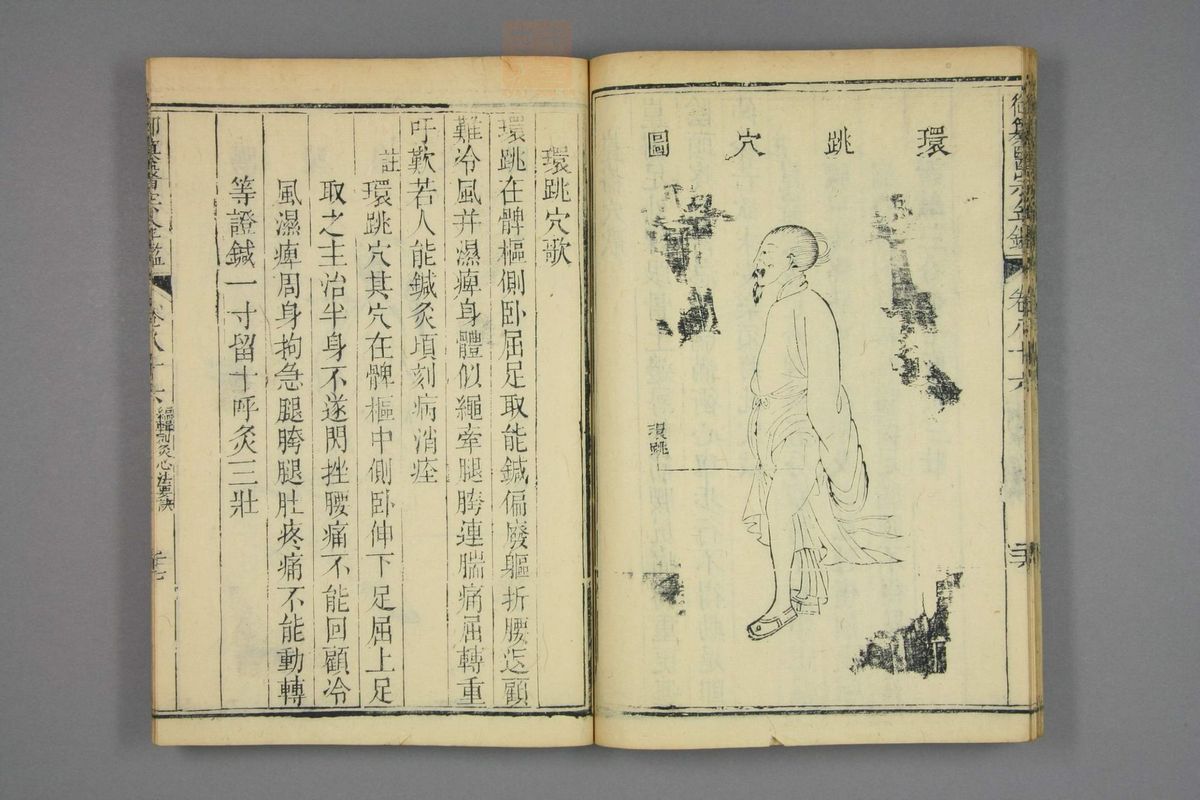 御纂醫宗金鑑 卷八十六
環跳穴圖
環跳
環跳穴歌
環跳在髀樞側卧屈足取能鍼偏廢軀折腰返顧
難冷風并濕痺身體似繩牽腿胯連腨痛屈轉重
吁歎若人能鍼灸頃刻病消痊
註環跳穴其穴在髀樞中側卧伸下足屈上足
取之主治半身不遂閃挫腰痛不能回顧冷
風濕痺周身拘急腿胯腿肚疼痛不能動轉
等證鍼一寸留十呼灸三壯
卷八十六 編輯刺灸心法要訣